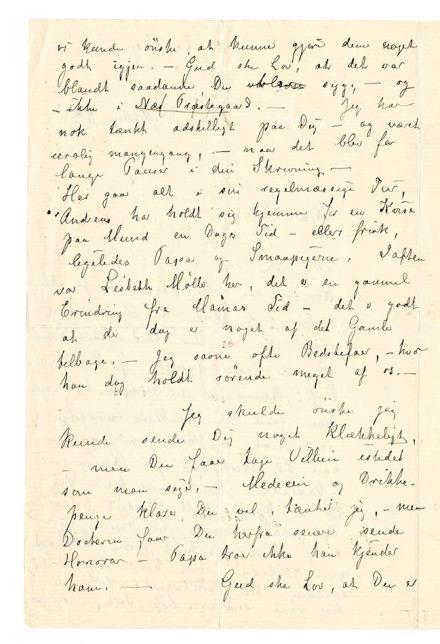 vi kunde ønske at kunne gjøre dem noget
godt igjen. — Gud ske Lov, at det var
blandt saadanne, Du blev syg, — og
— ikke i Næs Præstegaard. — Jeg har
nok tænkt adskelligt paa Dig — og været
urolig mangengang, — naar det blev for
lange Pauser i din Skrivning —
Her gaar alt i sin regelmæssige Tur,
Andreas har holdt sig hjemme for en
paa Mund en Dages Tid — ellers frisk,
ligeledes Papa og Smaapigerne. Iaften
var Lisbeth Mølle her, det er en gammel
Erindring fra Mamas Tid — det er godt
at de dog er noget af det Gamle
tilbage. — Jeg savner ofte Bedstefar, — hvor
han dog holdt rørende meget af os. —
Jeg skulde ønske jeg
kunde sende Dig noget Klækkeligt,
— men Du faar tage Villien istedet
som man siger, — Medecin og Drikke-
penge klarer Du vel, tænker jeg, — men
Doctoren faar Du herfra senere sende
Honorar — Papa tror ikke han kjender
ham. — Gud ske Lov, at Du er